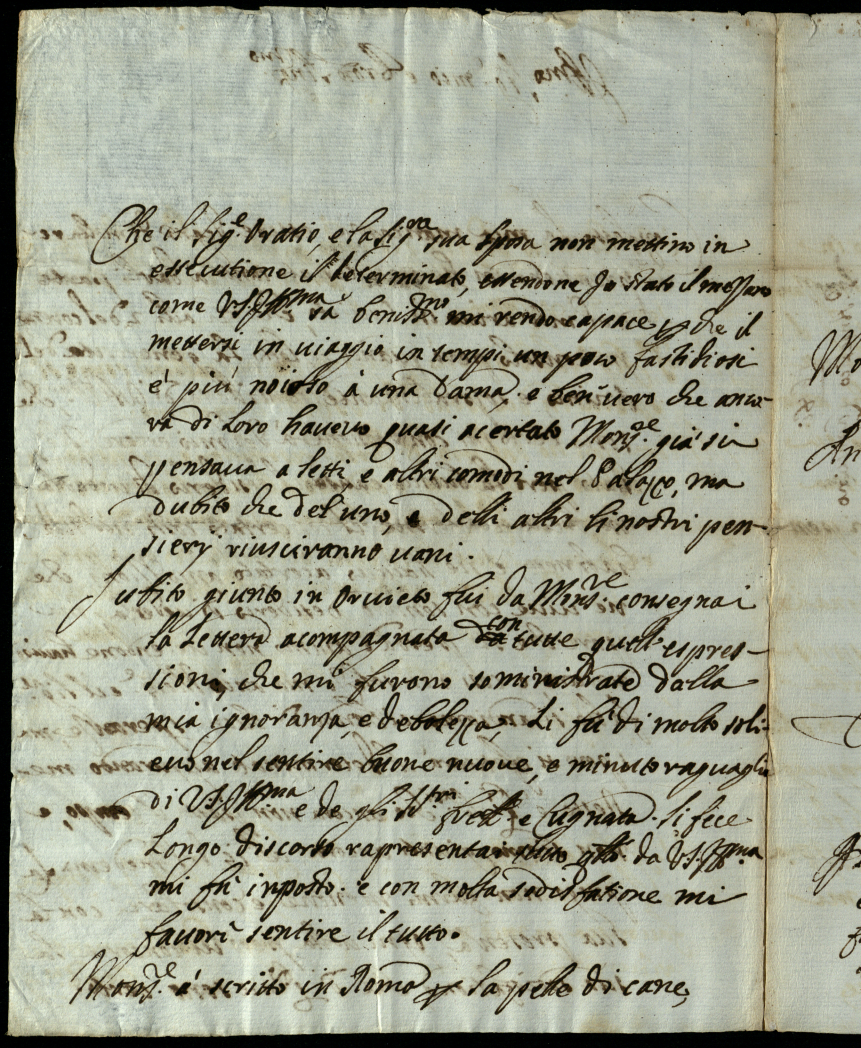 Che il Sig.e Oratio, e la Sig.ra sua sposa non mettino in
essecutione il determinato, essendone Jo stato il messaro
come V.S.Ill.ma sà beniss.mo mi rendo capace che il
mettersi in uiaggio in tempi un poco fastidiosi
è più noioso à una Dama, e ben uero che anco-
ra di Loro haueuo quasi acertato Mons.re già si
pensaua a letti e altri comodi nel Palazzo, ma
dubito che del uno, e delli altri li nostri pen-
sierj riusciranno uani.
Subito giunto in Oruieto fui da Mons.re consegnai
la Lettera acompagnata con tutte quell' espres-
sioni, che mi furono soministrate dalla
mia ignoranza, e debolezza, Li fù di molto soli-
euo nel sentire buone nuoue, e minuto raguaglio
di V.S.Ill.ma e de gli SS.ri frelli e Cugnata. Si fece
Longo discorso rapresentai tutto qllo da V.S.Ill.ma
mi fù inposto. e con molta sodisfatione mi
fauorì sentire il tutto.
Mons.re à scritto in Roma per la pelle di cane,